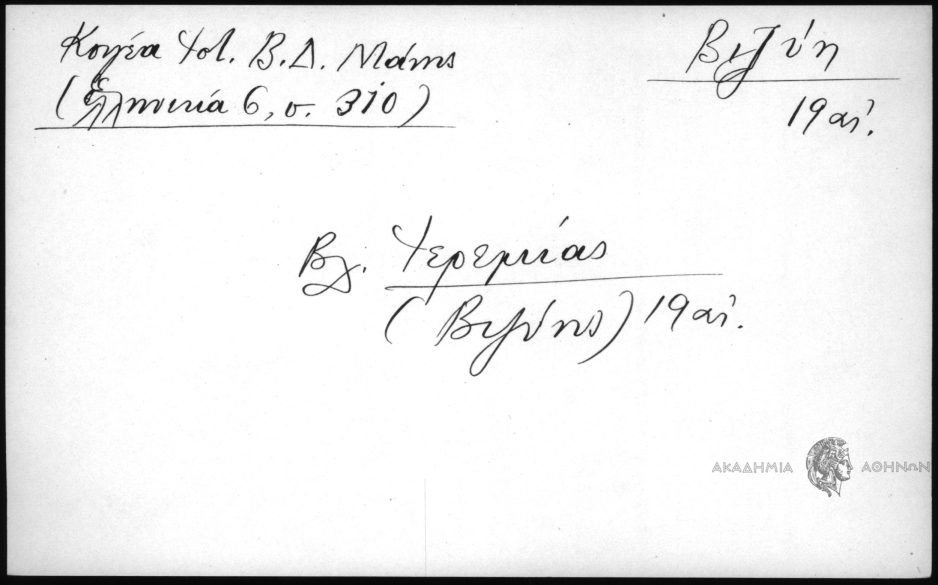 Κουγέα Ἱστ. Β.Δ. Μάνης
(Ἑλληνικά 6, σ. 310)
Βιζύη
19 αἰ.
Βλ. Ἱερεμίας
(Βιζύης) 19 αἰ.
ΑΚΑΔΗΜΙΑ ΑΘΗΝΩΝ